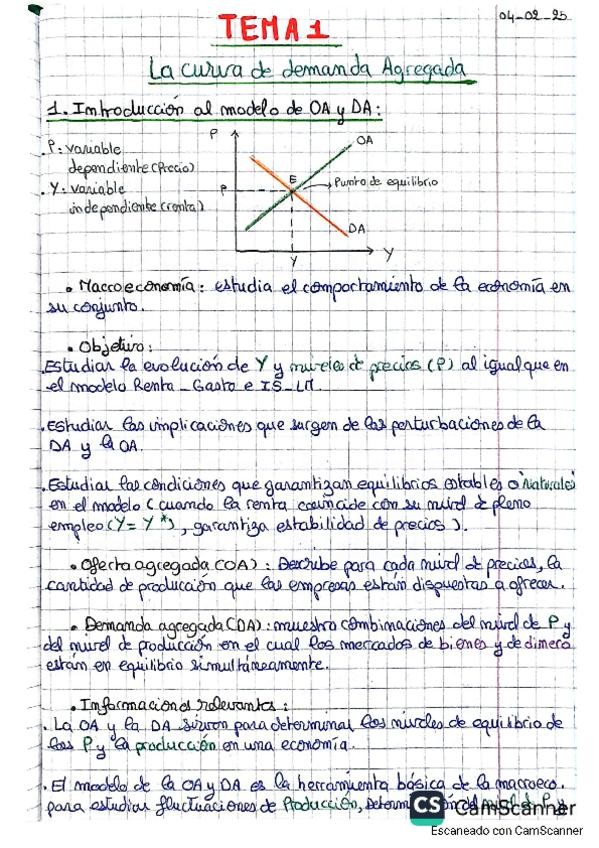 04-02-25
TEMA 1
La curva de demanda Agregada
1. Introducción al modelo de OA y DA:
. P: variable
dependiente (Precio)
. Y: variable
independiente (renta)
P
OA
E
Punto de equilibrio
P
DA
Y
Y
• Macroeconomía: estudia el comportamiento de la economía en
su conjunto.
• Objetivo:
. Estudiar la evolución de Y y niveles de precios (P) al igual que en
el modelo Renta - Gasto e IS - LM.
. Estudiar las implicaciones que surgen de las perturbaciones de la
DA y la OA.
. Estudiar las condiciones que garantizan equilibrios estables o "Naturales"
en el modelo (cuando la renta coincide con su nivel de pleno
empleo (Y = Y*), garantiza estabilidad de precios).
• Oferta agregada (OA): Describe para cada nivel de precios, la
cantidad de producción que las empresas están dispuestas a ofrecer.
• Demanda agregada (DA): muestra combinaciones del nivel de P y
del nivel de producción en el cual los mercados de bienes y de dinero
están en equilibrio simultáneamente.
• Informaciones relevantes:
. La OA y la DA sirven para determinar los niveles de equilibrio de
los P y la producción en una economía.
. El modelo de la OA y DA es la herramienta básica de la macroeco.
para estudiar fluctuaciones de Producción,
CS CamScanner
Escaneado con CamScanner